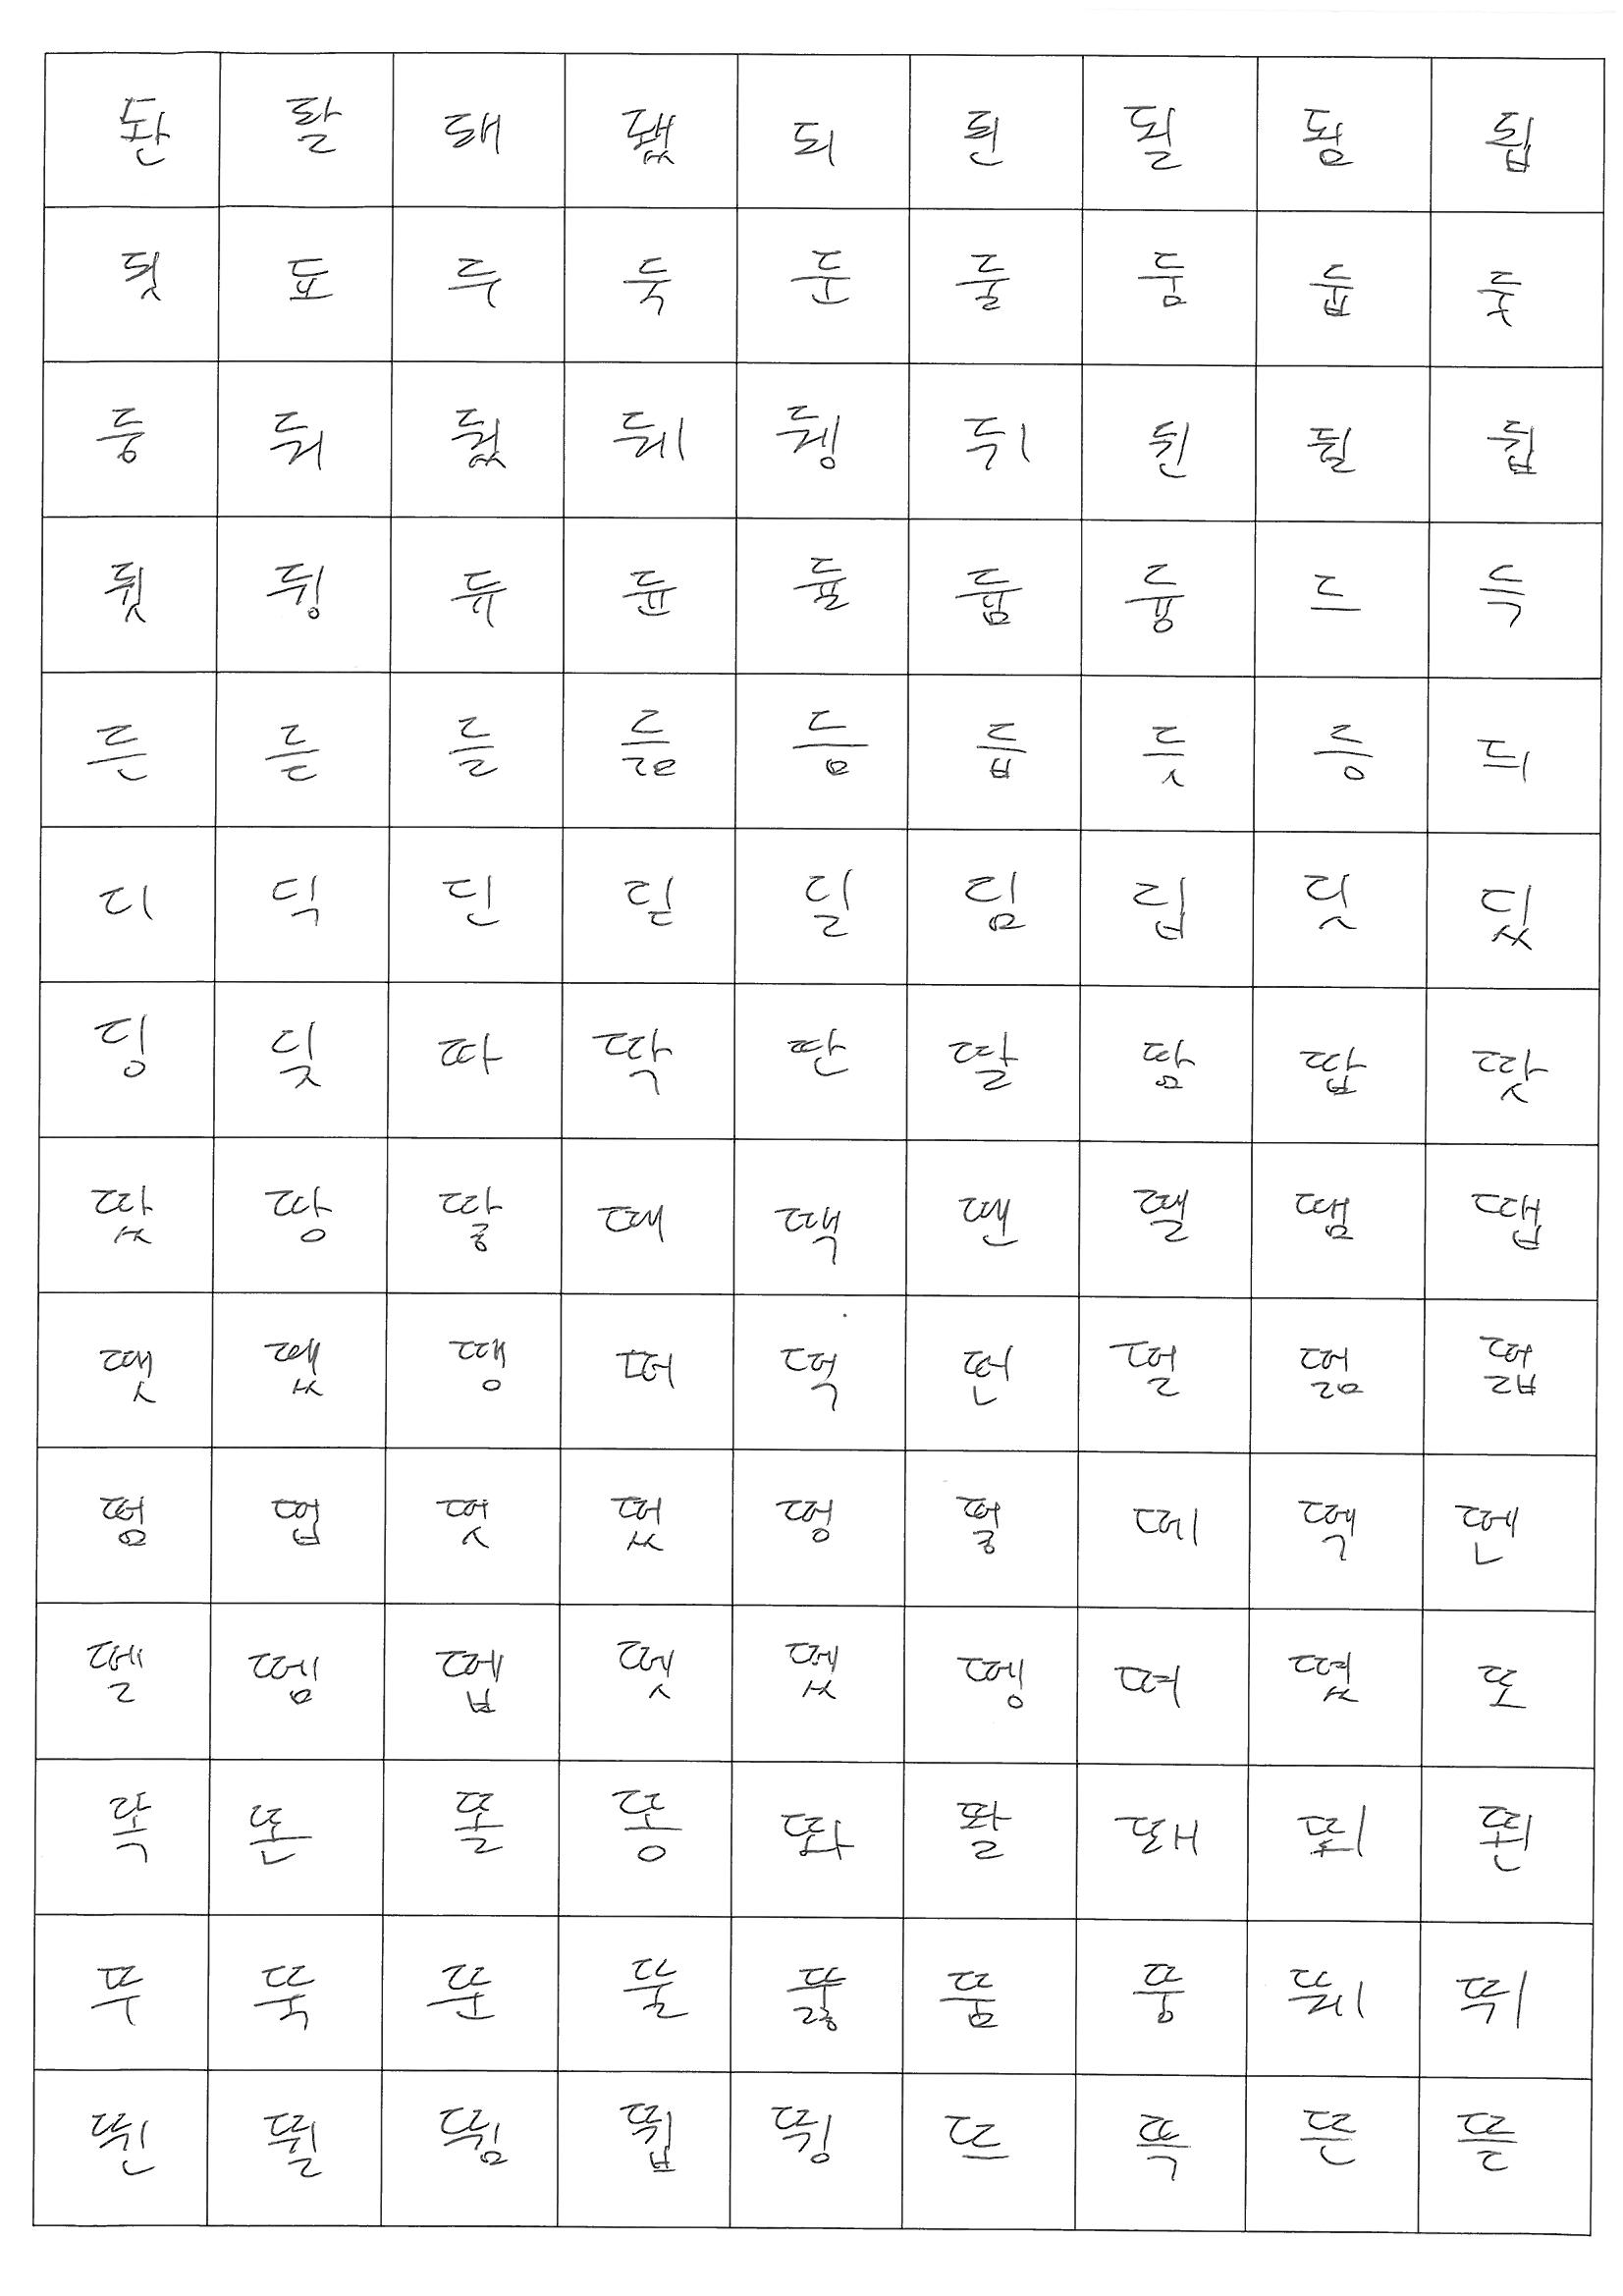 돤 돨 돼 됐 되 된 될 됨 됩
됫 됴 두 둑 둔 둘 둠 둡 둣
둥 둬 뒀 뒈 뒝 뒤 뒨 뒬 뒵
뒷 뒹 듀 듄 듈 듐 듕 드 득
든 듣 들 듦 듬 듭 듯 등 듸
디 딕 딘 딛 딜 딤 딥 딧 딨
딩 딪 따 딱 딴 딸 땀 땁 땃
땄 땅 땋 때 땍 땐 땔 땜 땝
땟 땠 땡 떠 떡 떤 떨 떪 떫
떰 떱 떳 떴 떵 떻 떼 떽 뗀
뗄 뗌 뗍 뗏 뗐 뗑 뗘 뗬 또
똑 똔 똘 똥 똬 똴 뙈 뙤 뙨
뚜 뚝 뚠 뚤 뚫 뚬 뚱 뛔 뛰
뛴 뛸 뜀 뜁 뜅 뜨 뜩 뜬 뜯